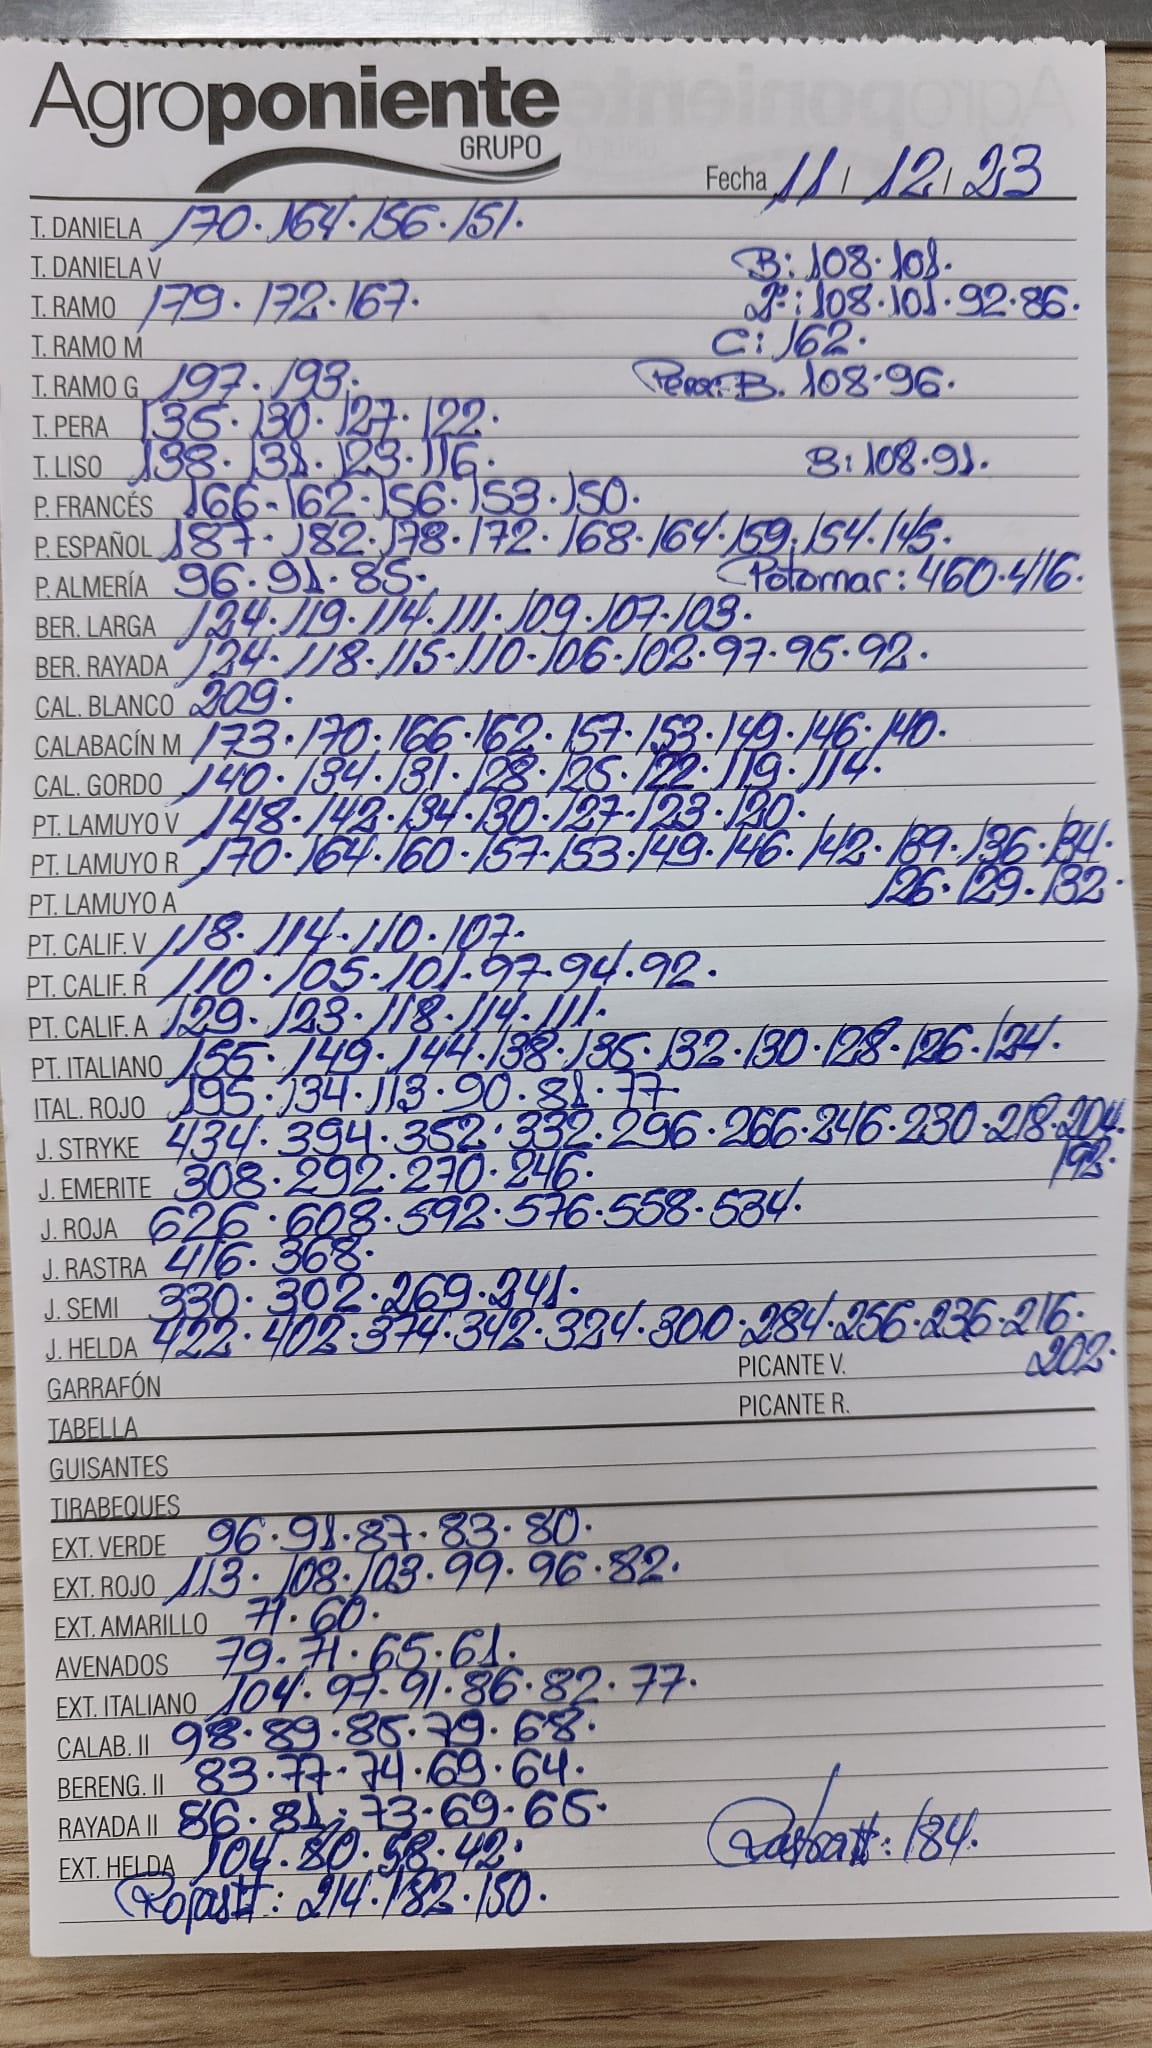 Agroponiente
GRUPO
Fecha 11 / 12 / 23
T. DANIELA 170 · 164 · 156 · 151 ·
T. DANIELA V B: 108 · 101 ·
T. RAMO 179 · 172 · 167 · 2ª: 108 · 101 · 92 · 86 ·
T. RAMO M C: 162 ·
T. RAMO G 197 · 193 · Pera: B. 108 · 96 ·
T. PERA 135 · 130 · 127 · 122 ·
T. LISO 138 · 131 · 123 · 116 · B: 108 · 91 ·
P. FRANCÉS 166 - 162 · 156 · 153 · 150 ·
P. ESPAÑOL 187 · 182 · 178 · 172 · 168 · 164 · 159 · 154 · 145 ·
P. ALMERÍA 96 · 91 · 85 · Potomar: 460 · 416 ·
BER. LARGA 124 · 119 · 114 · 111 · 109 · 107 · 103 ·
BER. RAYADA 124 · 118 · 115 · 110 · 106 · 102 · 97 · 95 · 92 ·
CAL. BLANCO 209 ·
CALABACÍN M 173 · 170 · 166 · 162 · 157 · 153 · 149 · 146 · 140 ·
CAL. GORDO 140 · 134 · 131 · 128 · 125 · 122 · 119 · 114 ·
PT. LAMUYO V 148 · 142 · 134 · 130 · 127 · 123 · 120 ·
PT. LAMUYO R 170 · 164 · 160 · 157 · 153 · 149 · 146 · 142 · 139 · 136 · 134 ·
PT. LAMUYO A 126 · 129 · 132 ·
PT. CALIF. V 118 · 114 · 110 · 107 ·
PT. CALIF. R 110 · 105 · 101 · 97 · 94 · 92 ·
PT. CALIF. A 129 · 123 · 118 · 114 · 111 ·
PT. ITALIANO 155 · 149 · 144 · 138 · 135 · 132 · 130 · 128 · 126 · 124 ·
ITAL. ROJO 195 · 134 · 113 · 90 · 81 · 77 ·
J. STRYKE 434 · 394 · 352 · 332 · 296 · 266 · 246 · 230 · 218 · 204 ·
J. EMERITE 308 · 292 · 270 · 246 · 192 ·
J. ROJA 626 · 608 · 592 · 576 · 558 · 534 ·
J. RASTRA 416 · 368 ·
J. SEMI 330 · 302 · 269 · 241 ·
J. HELDA 422 · 402 · 374 · 342 · 324 · 300 · 284 · 256 · 236 · 216 ·
GARRAFÓN PICANTE V. 202 ·
TABELLA PICANTE R.
GUISANTES
TIRABEQUES
EXT. VERDE 96 · 91 · 87 · 83 · 80 ·
EXT. ROJO 113 · 108 · 103 · 99 · 96 · 82 ·
EXT. AMARILLO 71 · 60 ·
AVENADOS 79 · 71 · 65 · 61 ·
EXT. ITALIANO 104 · 97 · 91 · 86 · 82 · 77 ·
CALAB. II 98 · 89 · 85 · 79 · 68 ·
BERENG. II 83 · 77 · 74 · 69 · 64 ·
RAYADA II 86 · 81 · 73 · 69 · 65 ·
EXT. HELDA 104 · 80 · 58 · 42 · RastraII: 184 ·
RojasII: 214 · 182 · 150 ·